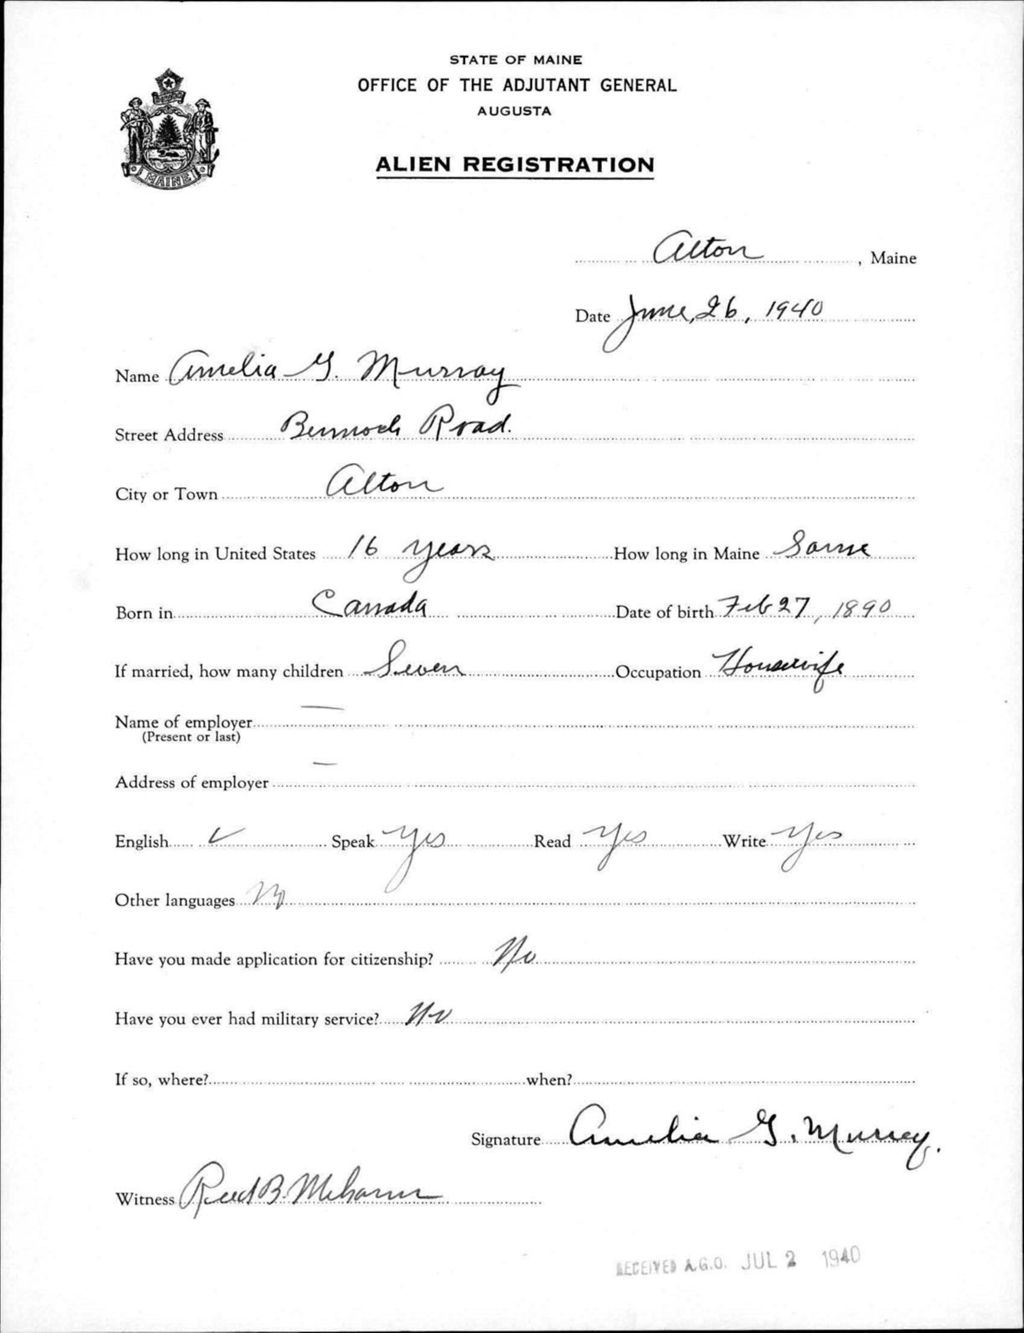 STATE OF MAINE
OFFICE OF THE ADJUTANT GENERAL
AUGUSTA
ALIEN REGISTRATION
MAINE
Alton, Maine
Date June, 26, 1940
Name Amelia G. Murray
Street Address Bennoch Road.
City or Town Alton
How long in United States 16 years How long in Maine Same
Born in Canada Date of birth Feb 27, 1890
If married, how many children Seven Occupation Housewife
Name of employer —
(Present or last)
Address of employer —
English ✓ Speak Yes Read Yes Write Yes
Other languages No
Have you made application for citizenship? No
Have you ever had military service? No
If so, where? when?
Signature Amelia G. Murray.
Witness Reed B.
RECEIVED A.G.O. JUL 2 1940